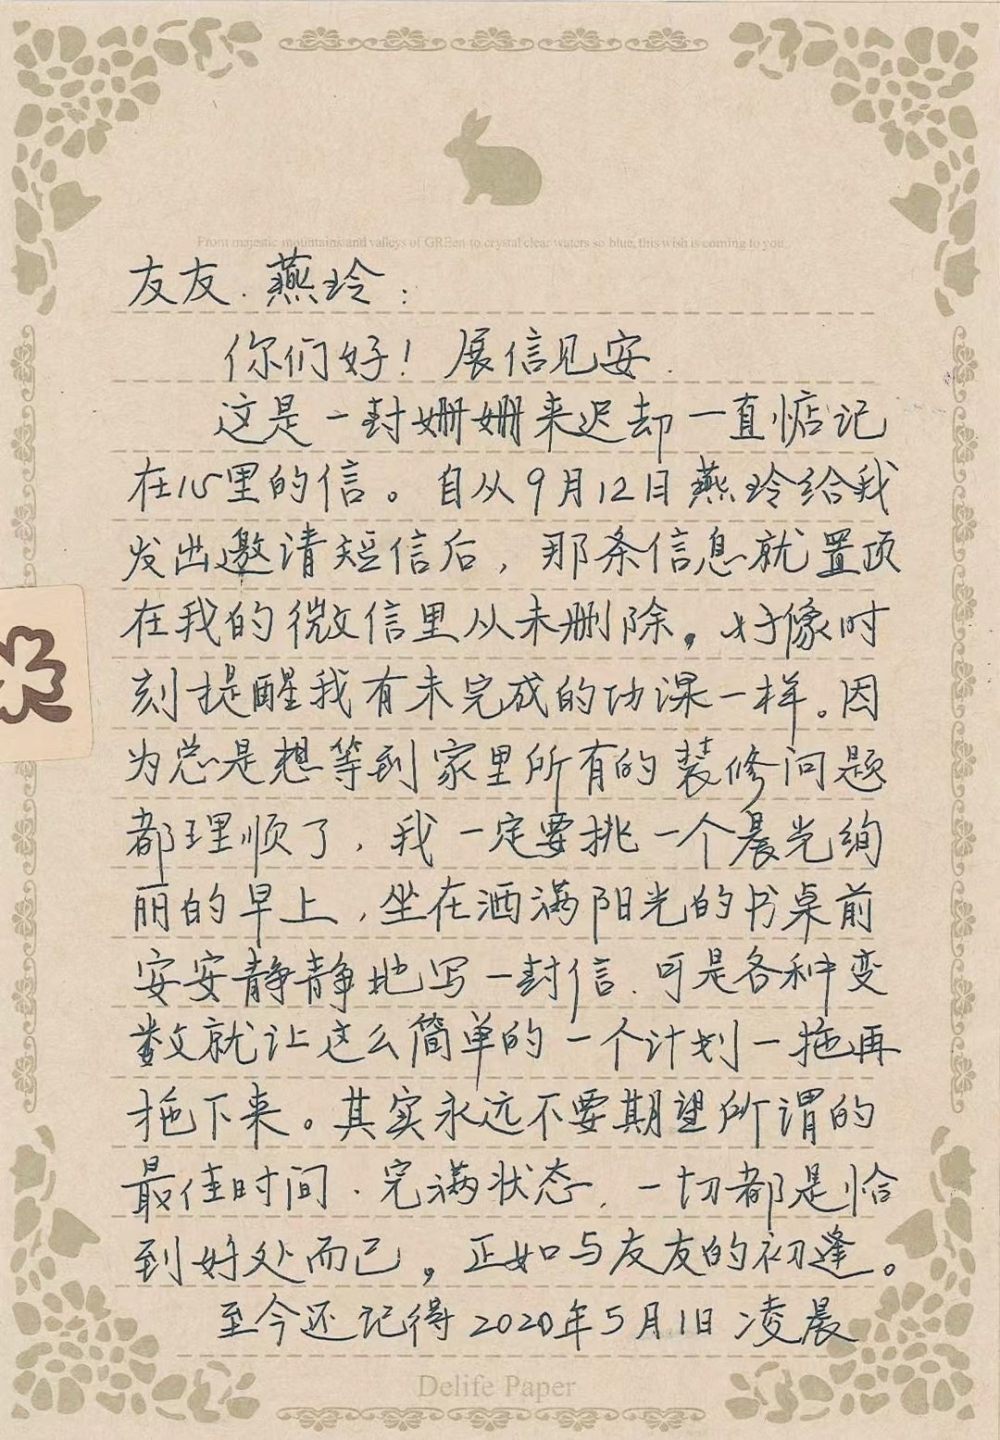 From majestic mountains and valleys of GREen to crystal clear waters so blue, this wish is coming to you.
友友.燕玲:
你们好！展信见安.
这是一封姗姗来迟却一直惦记
在心里的信。自从9月12日燕玲给我
发出邀请短信后，那条信息就置顶
在我的微信里从未删除。好像时
刻提醒我有未完成的功课一样。因
为总是想等到家里所有的装修问题
都理顺了，我一定要挑一个晨光绚
丽的早上，坐在洒满阳光的书桌前
安安静静地写一封信.可是各种变
数就让这么简单的一个计划一拖再
拖下来。其实永远不要期望所谓的
最佳时间.完满状态.一切都是恰
到好处而已，正如与友友的初逢。
至今还记得2020年5月1日凌晨
Delife Paper